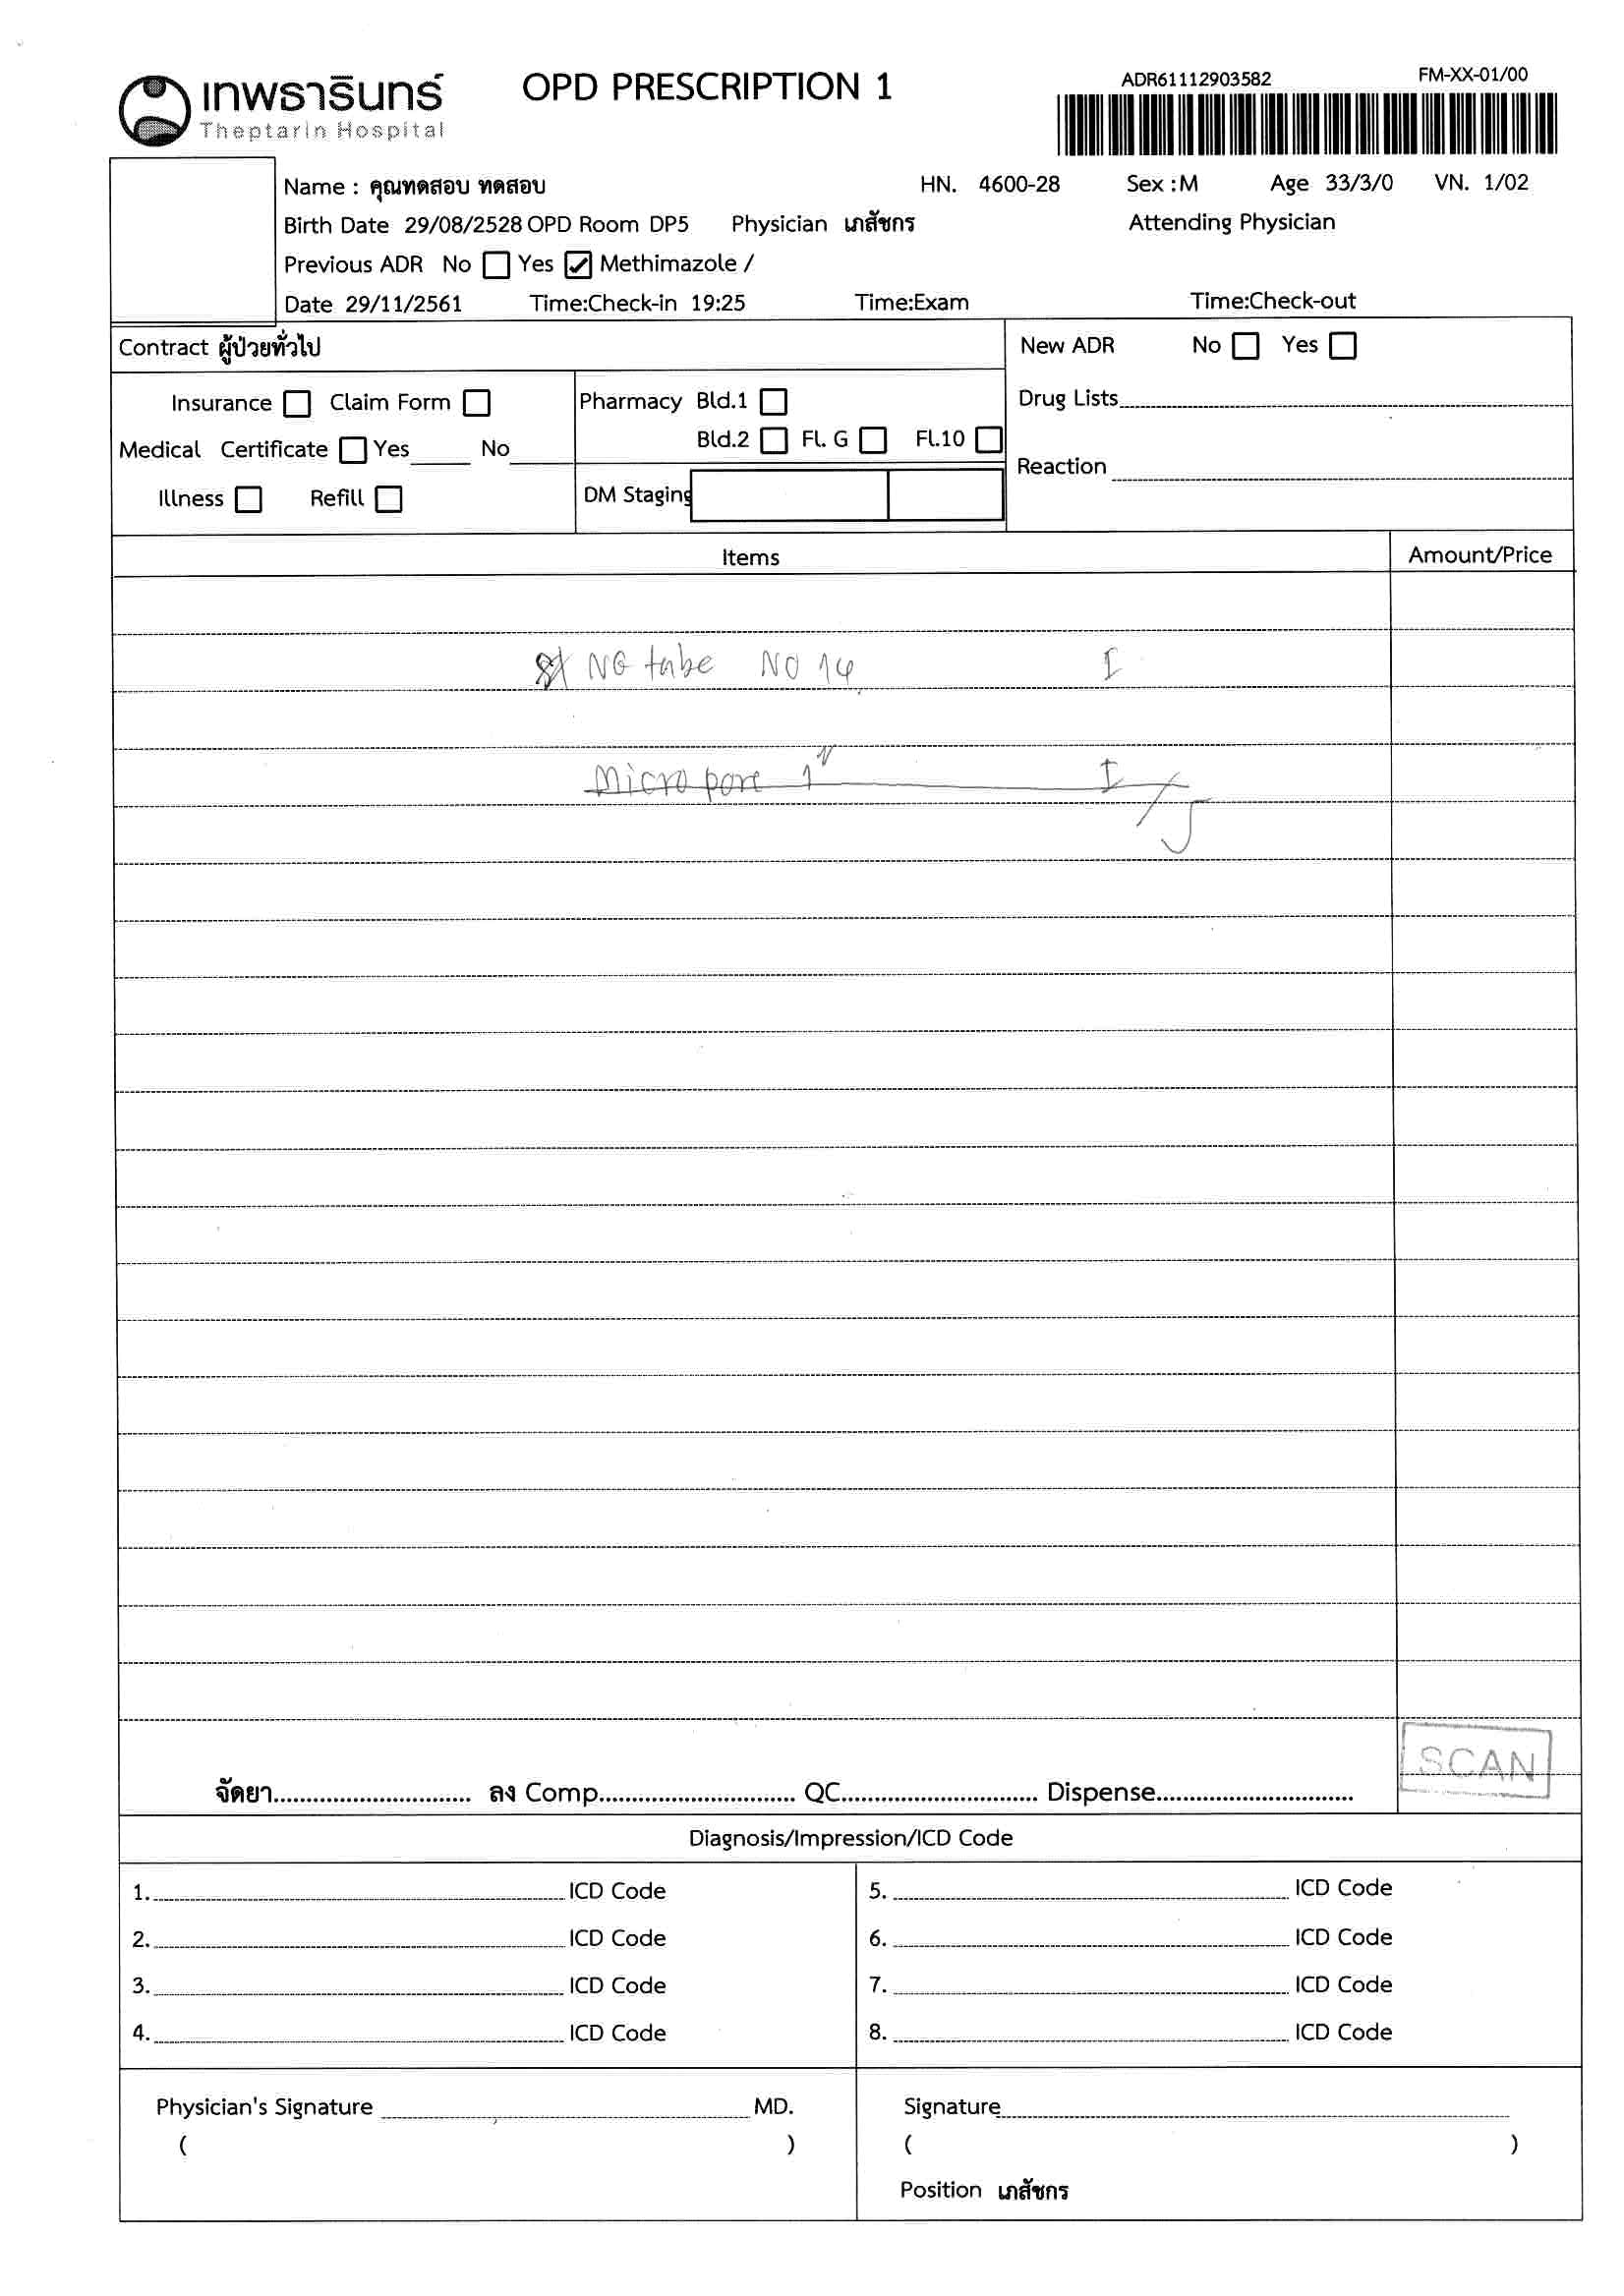 เทพธารินทร์ OPD PRESCRIPTION 1 ADR61112903582 FM-XX-01/00
Theptarin Hospital
Name : คุณทดสอบ ทดสอบ HN. 4600-28 Sex :M Age 33/3/0 VN. 1/02
Birth Date 29/08/2528 OPD Room DP5 Physician เภสัชกร Attending Physician
Previous ADR No Yes Methimazole /
Date 29/11/2561 Time:Check-in 19:25 Time:Exam Time:Check-out
Contract ผู้ป่วยทั่วไป New ADR No Yes
Insurance Claim Form Pharmacy Bld.1 Drug Lists
Medical Certificate Yes No Bld.2 Fl. G Fl.10
Reaction
Illness Refill DM Staging
Items Amount/Price
NG tube NO 14 I
Micropore 1" I
SCAN
จัดยา............................. ลง Comp............................. QC............................. Dispense.............................
Diagnosis/Impression/ICD Code
1. ICD Code 5. ICD Code
2. ICD Code 6. ICD Code
3. ICD Code 7. ICD Code
4. ICD Code 8. ICD Code
Physician's Signature MD. Signature
( ) ( )
Position เภสัชกร